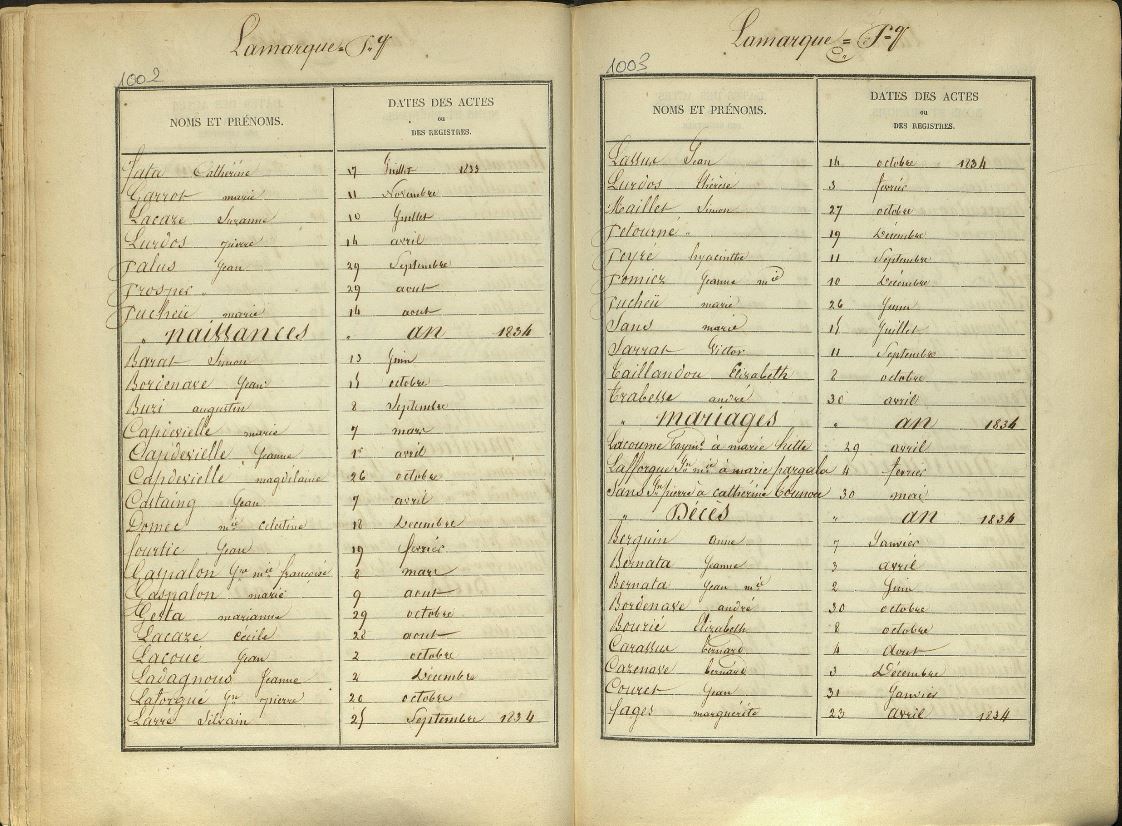 Lamarque = P.q
1002
NOMS ET PRÉNOMS.
DATES DES ACTES
ou
DES REGISTRES.
Fata Cathérine 17 Juillet 1833
Garrot marie 11 Novembre
Lacaze Suzanne 10 Juillet
Lurdos pierre 14 avril
Palus Jean 29 Septembre
Prosper „ 29 aout
Pucheu marie 14 aout
„ naissances „ an 1834
Barat Simon 13 Juin
Bordenave Jean 15 octobre
Buzi augustin 8 Septembre
Capdevielle marie 7 mars
Capdevielle Jeanne 1er avril
Capdevielle magdelaine 26 octobre
Castaing Jean 7 avril
Domec mie celestine 18 Decembre
fourtic Jean 19 fevrier
Gaspalon Jne mie françoise 8 mars
Gaspalon marie 9 aout
Gesta marianne 29 octobre
Lacaze Cécile 28 aout
Lacoué Jean 2 octobre
Ladagnous Jeanne 2 Decembre
Laforgue Jn pierre 20 octobre
Larré Silvain 25 Septembre 1834
Lamarque = P.q
1003
NOMS ET PRÉNOMS.
DATES DES ACTES
ou
DES REGISTRES.
Lassus Jean 14 octobre 1834
Lurdos thérèse 3 fevrier
Maillet Simon 27 octobre
Petourné „ 19 Décembre
Peyré hyacinthe 11 Septembre
Pomiez Jeanne mie 10 Décembre
Pucheu marie 26 Juin
Sans marie 15 Juillet
Sarrat Victor 11 Septembre
Taillandou Elizabeth 8 octobre
Trabesse andré 30 avril
„ mariages „ an 1834
Lacoume Raymd à marie 29 avril
Lafforgue Jn mie à marie pargala 4 fevrier
Sans Jn pierre à cathérine Tounou 30 mai
„ Décès „ an 1834
Berguin anne 7 Janvier
Bernata Jeanne 3 avril
Bernata Jean mie 2 Juin
Bordenave andré 30 octobre
Bourié Elizabeth 8 octobre
Carassus bernard 4 Aout
Cazenave bernard 3 Décembre
Couret Jean 31 Janvier
fages marguérite 23 avril 1834